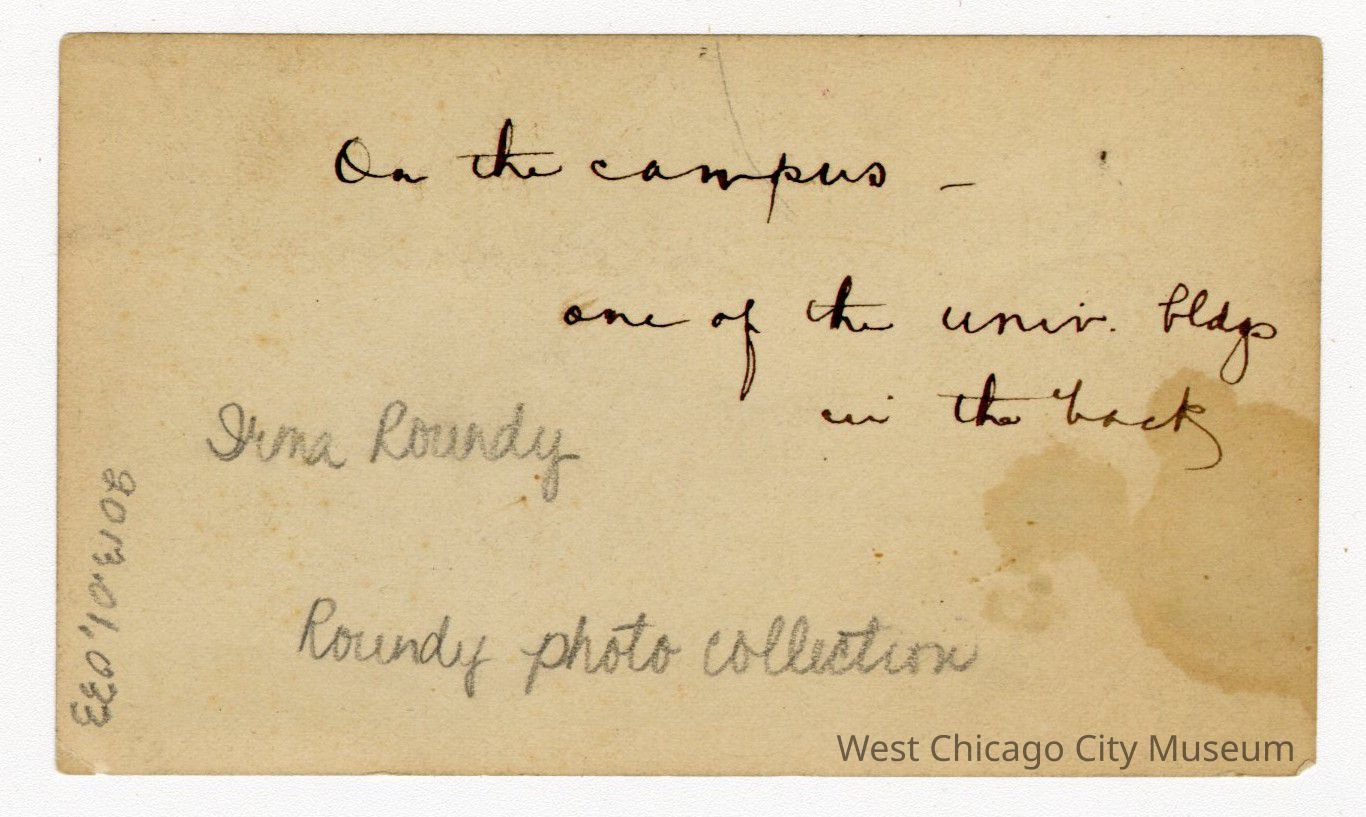 On the campus –
one of the univ. bldgs
in the back
Irma Roundy
Roundy photo collection
2013.01.033
West Chicago City Museum